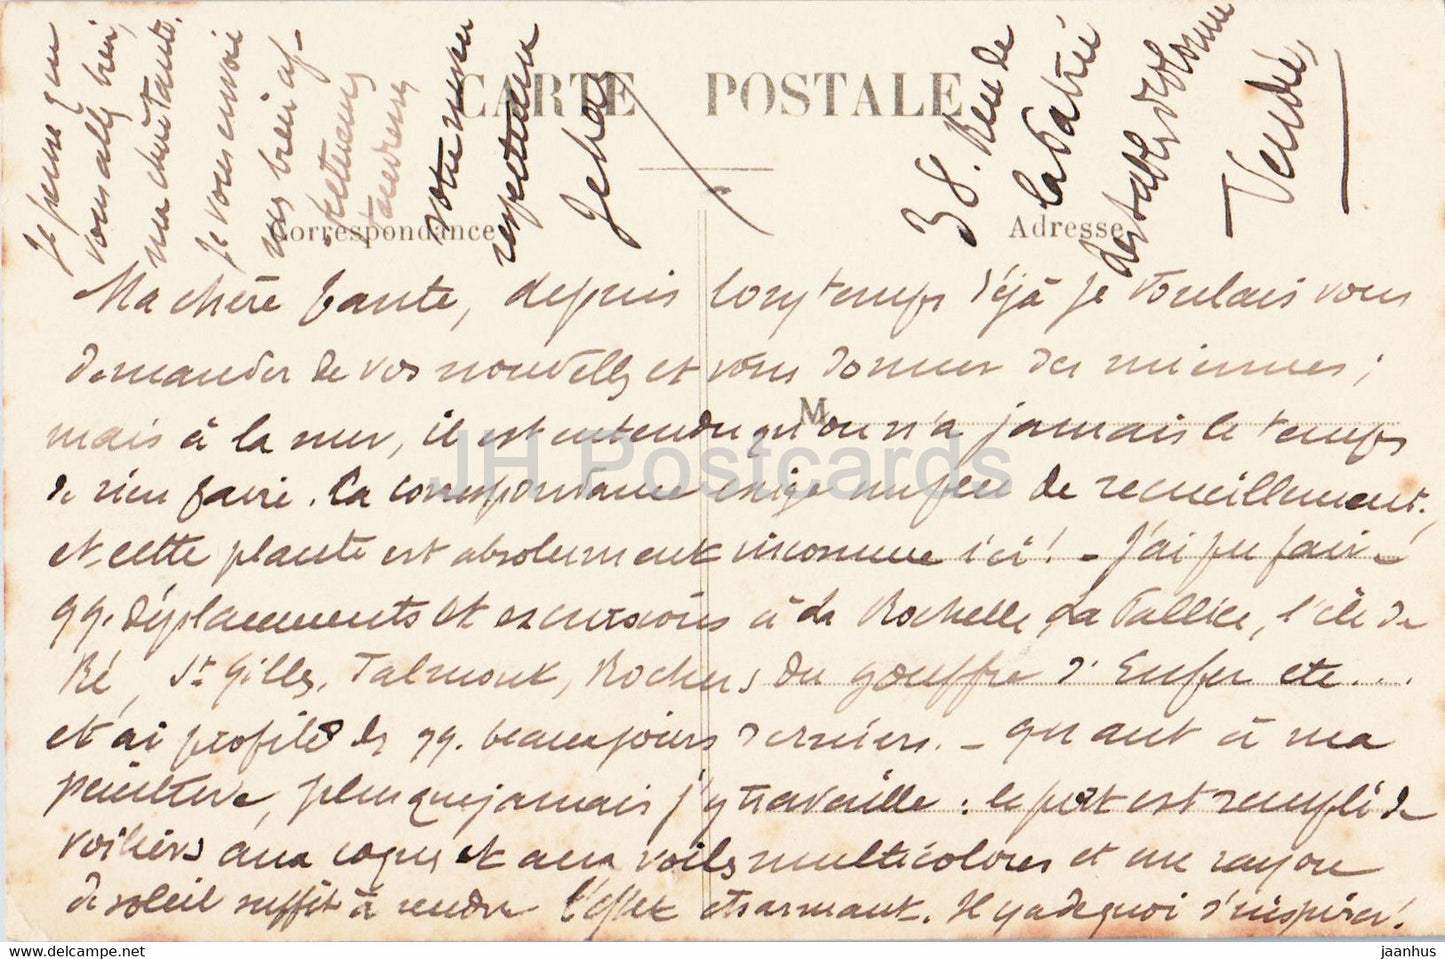 CARTE POSTALE
Correspondance
Adresse
M
Ma chère tante, depuis longtemps déjà je voulais vous
demander de vos nouvelles et vous donner des miennes ;
mais à la mer, il est entendu qu'on n'a jamais le temps
de rien faire. La correspondance exige un peu de recueillement,
et cette plante est absolument inconnue ici ! - J'ai pu faire
qq. déplacements et excursions à La Rochelle, La Pallice, l'île de
Ré, St Gilles, Talmont, Rochers du gouffre d'Enfer etc...
et ai profité des qq. beaux jours derniers. - quant à ma
peinture, plus que jamais j'y travaille : le port est rempli de
voiliers aux coques et aux voiles multicolores et un rayon
de soleil suffit à rendre l'effet etsarmant. Il y a de quoi s'inspirer !
Je pense que
vous allez bien,
ma chère tante.
Je vous envoie
mes bien af-
fectueuses
tendresses
votre neveu
respectueux
Jehan
38. Rue de
la Patrie
des Sables d'Olonne
Vendée
JH Postcards
www.hippostcard.com
jaanhus